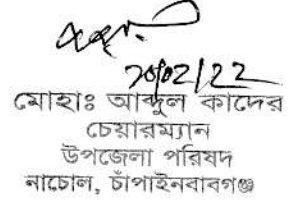 ২০/02/22
মোহাঃ আব্দুল কাদের
চেয়ারম্যান
উপজেলা পরিষদ
নাচোল, চাঁপাইনবাবগঞ্জ